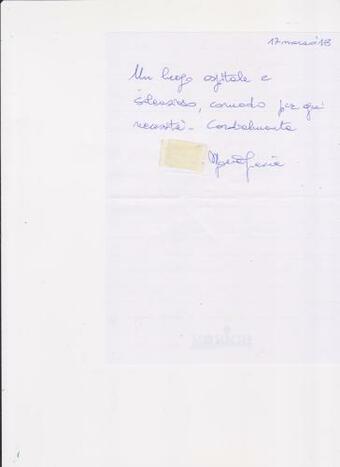 17 marzo '18
Un luogo ospitale e
silenzioso, comodo per ogni
necessità - Cordialmente